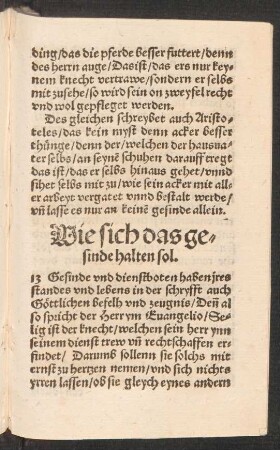 ding/das die pferde besser futtert/denn
des herrn auge/Das ist/das ers nur key-
nem knecht vertrawe/sondern er selbs
mit zusehe/so wird sein on zweyfel recht
vnd wol gepfleget werden.
Des gleichen schreybet auch Aristo-
teles/das kein myst denn acker besser
thünge/denn der/welchen der hausua-
ter selbs/an seynẽ schuhen darauff tregt
das ist/das er selbs hinaus gehet/vnnd
sihet selbs mit zu/wie sein acker mit all-
er arbeyt vergatet vnnd bestalt werde/
vñ lasse es nur an keinẽ gesinde allein.
Wie sich das ge-
sinde halten sol.
13 Gesinde vnd dienstboten haben jres
standes vnd lebens in der schryfft auch
Göttlichen befelh vnd zeugnis/Deñ al
so spricht der Herr ym Euangelio/Se-
lig ist der knecht/welchen sein herr ynn
seinem dienst trew vñ rechtschaffen er-
findet/Darumb sollenn sie solchs mit
ernst zu hertzen nemen/vnd sich nichts
yrren lassen/ob sie gleych eynes andern